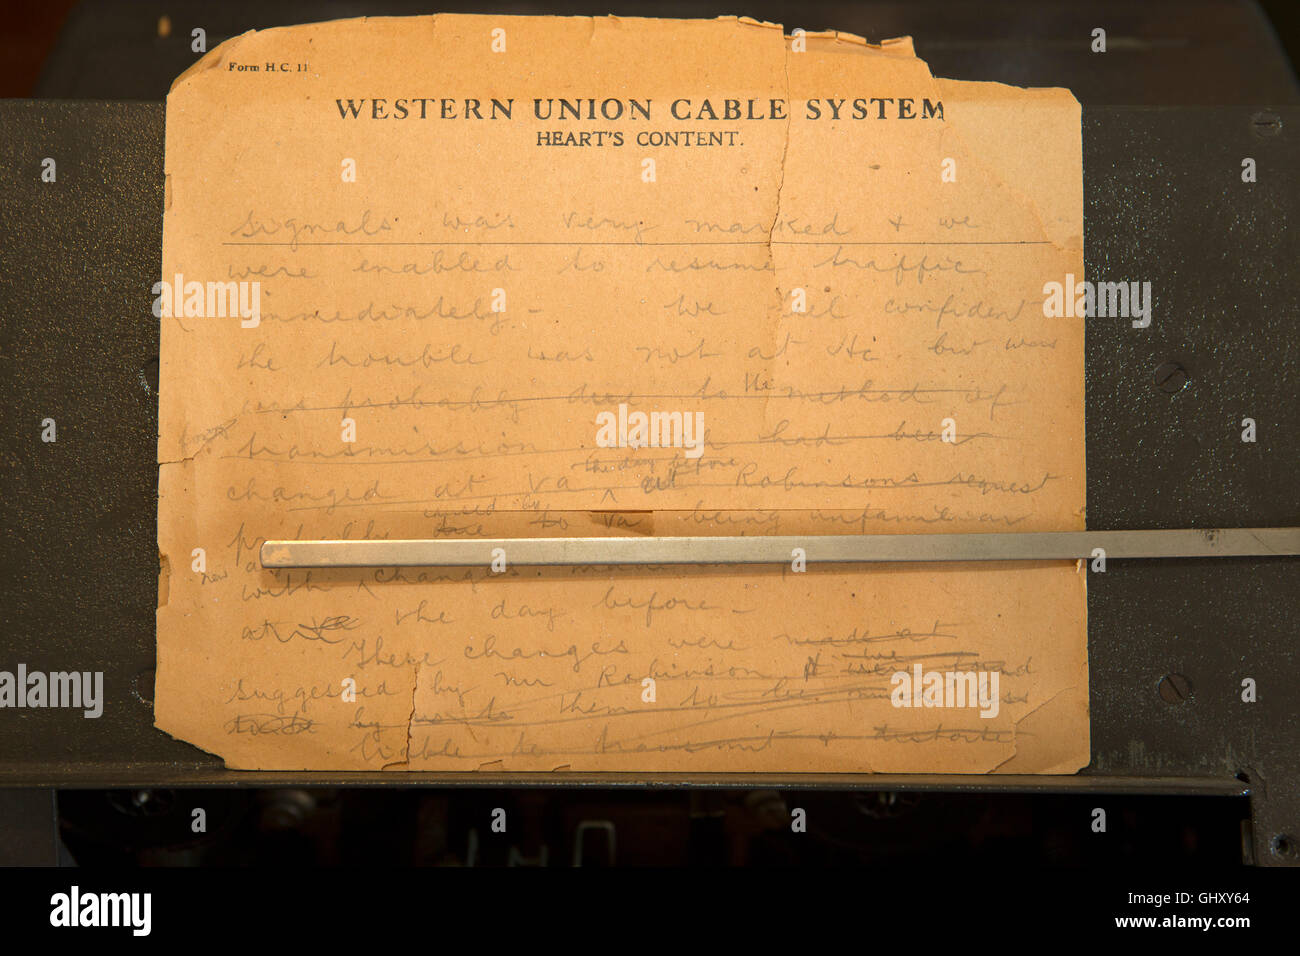 Form H.C. 11
WESTERN UNION CABLE SYSTEM
HEART'S CONTENT.
signals was very marked & we
were enabled to resume traffic
immediately - We feel confident
the trouble was not at Hc. but was
was probably due to the method of
transmission which had been
changed at Va the day before at Robinsons request
probably caused by due to Va being unfamiliar
with new changes made in
at Va the day before -
These changes were made at
suggested by Mr Robinson & were found
to be by us to them to be much less
liable to transmit & distorte
alamy
alamy stock photo
GHXY64
www.alamy.com